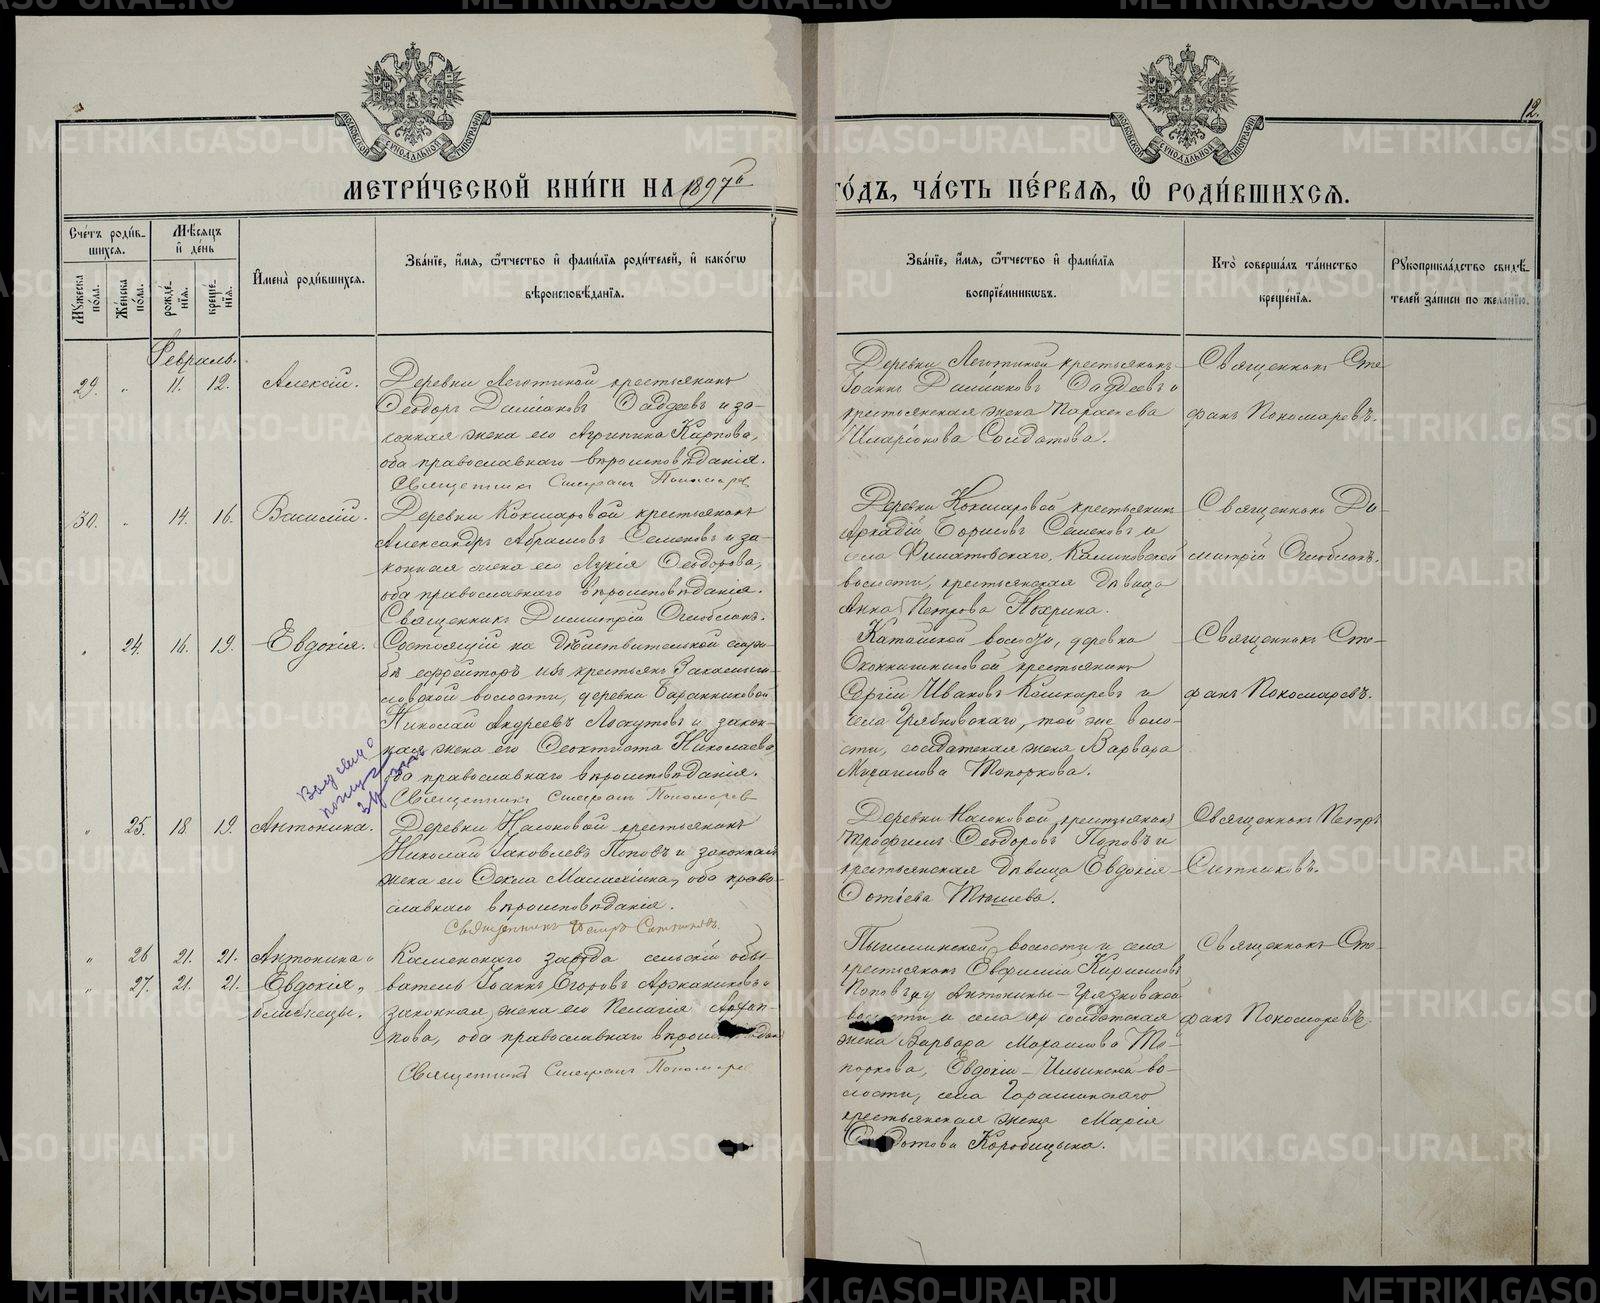 12.
МОСКОВСКОЙ СѴНОДАЛЬНОЙ ТИПОГРАФІИ
МОСКОВСКОЙ СѴНОДАЛЬНОЙ ТИПОГРАФІИ
МЕТРИ́ЧЕСКОЙ КНИ́ГИ НА 1897й
ГО́ДЪ, ЧА́СТЬ ПЕ́РВАѦ, Ѡ҆ РОДИ́ВШИХСѦ.
Сче́тъ роди́в-
шихсѧ.
Мꙋжеска пола.
Же́нска по́ла.
Мѣ́сѧцъ
и҆ де́нь
рожде́-
нїѧ.
креще́-
нїѧ.
И҆мена̀ роди́вшихсѧ.
Зва́нїе, и҆́мѧ, ѻ҆́тчество и҆ фами́лїѧ роди́телей, и҆ како́гѡ
вѣроисповѣ́данїѧ.
Зва́нїе, и҆́мѧ, ѻ҆́тчество и҆ фами́лїѧ
воспрїе́мникѡвъ.
Кто̀ соверша́лъ та́инство
креще́нїѧ.
Рꙋкоприкла́дство свидѣ́-
телей за́писи по жела́нїю.
Февраль.
29. " 11. 12. Алексій.
Деревни Леготиной крестьянинъ
Ѳеодоръ Даміановъ Ѳаддеевъ и за-
конная жена его Агрипина Карпова,
оба православнаго вѣроисповѣданія.
Священникъ Стефанъ Пономарев
Деревни Леготиной крестьянинъ
Іоаннъ Даміановъ Ѳаддеевъ и
крестьянская жена Параскева
Иларіонова Солдатова.
Священникъ Сте-
фанъ Пономаревъ.
30. " 14. 16. Василій.
Деревни Кокшаровой крестьянинъ
Александръ Абрамовъ Семеновъ и за-
конная жена его Лукія Ѳеодорова,
оба православнаго вѣроисповѣданія.
Священникъ Димитрій Оглоблинъ.
Деревни Кокшаровой крестьянинъ
Аркадій Борисовъ Семеновъ и
села Филатовскаго, Калиновской
волости, крестьянская дѣвица
Анна Петрова Нохрина.
Священникъ Ди-
митрій Оглоблинъ.
" 24. 16. 19. Евдокія.
Состоящій на дѣйствительной служ-
бѣ ефрейторъ изъ крестьянъ Закамыш-
ловской волости, деревни Баранниковой
Николай Андреевъ Лоскутовъ и закон-
ная жена его Ѳеоктиста Николаева,
оба православнаго вѣроисповѣданія.
Священникъ Стефанъ Пономарев
волости, деревни
крестьянинъ
Сергій Ивановъ Кошкаревъ и
села Грязновскаго, той же воло-
сти, солдатская жена Варвара
Михаилова Топоркова.
Священникъ Сте-
фанъ Пономаревъ.
" 25. 18. 19. Антонина.
Деревни Насоновой крестьянинъ
Николай Іаковлевъ Поповъ и законная
жена его Ѳекла Малахіина, оба право-
славнаго вѣроисповѣданія.
Священникъ Петръ Ситниковъ.
Деревни Насоновой крестьянинъ
Трофимъ Ѳеодоровъ Поповъ и
крестьянская дѣвица Евдокія
Фотіева Тюшева.
Священникъ Петръ
Ситниковъ.
" 26 21. 21. Антонина и
" 27. 21. 21. Евдокія,
близнецы.
Каменскаго завода сельскій обы-
ватель Іоаннъ Егоровъ Аржанниковъ и
законная жена его Пелагія
оба православнаго
Священникъ Стефанъ Пономарев
Пышминской волости и села
крестьянинъ Евфимій Кирилловъ
Поповъ, у Антонины – Грязновской
волости и села солдатская
жена Варвара Михаилова То-
поркова, Евдокіи – Ильинской во-
лости, села Гарашинскаго
крестьянская жена Марія
Коробицына.
Священникъ Сте-
фанъ Пономаревъ.
METRIKI.GASO-URAL.RU